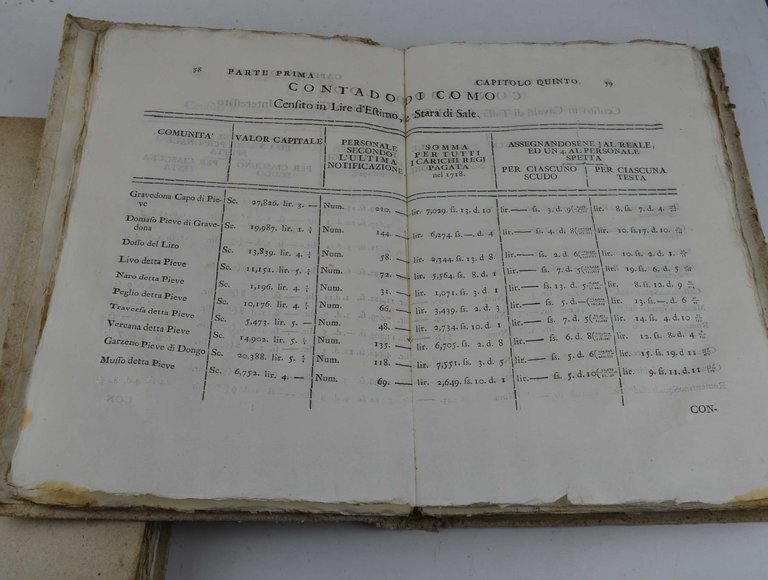 58 PARTE PRIMA
CAPITOLO QUINTO. 59
CONTADO DI COMO
Censito in Lire d'Estimo, e Stara di Sale.
COMUNITA'
VALOR CAPITALE
PERSONALE
SECONDO
L'ULTIMA
NOTIFICAZIONE
SOMMA
PER TUTTI
I CARICHI REGJ
PAGATA
nel 1718.
ASSEGNANDOSENE AL REALE,
ED UN 4. AL PERSONALE
SPETTA
PER CIASCUNO
SCUDO
PER CIASCUNA
TESTA
Gravedona Capo di Pieve Sc. 27,826. lir. 3. — Num. 210. — lir. 7,029. ſs. 13. d. 10 lir. — ſs. 3. d. 9 lir. 8. ſs. 7. d. 4.
Domaſo Pieve di Gravedona Sc. 19,987. lir. 1. Num. 144. — lir. 6,274. ſs. —. d. 4 lir. — ſs. 4. d. 8 lir. 10. ſs. 17. d. 10.
Doſſo del Liro Sc. 13,839. lir. 4. Num. 58. — lir. 2,344. ſs. 13. d. 8 lir. — ſs. 2. d. 6 lir. 10. ſs. 2. d. 1.
Livo detta Pieve Sc. 11,151. lir. 5. Num. 72. — lir. 5,564. ſs. 8. d. 1 lir. — ſs. 7. d. 5 lir. 19. ſs. 6. d. 5
Naro detta Pieve Sc. 1,196. lir. 4. Num. 31. — lir. 1,071. ſs. 3. d. 1 lir. — ſs. 13. d. 5 lir. 8. ſs. 12. d. 9
Peglio detta Pieve Sc. 10,176. lir. 4. Num. 66. — lir. 3,439. ſs. 2. d. 3 lir. — ſs. 5. d. — lir. 13. ſs. —. d. 6
Traversa detta Pieve Sc. 5,473. lir. 5. — Num. 48. — lir. 2,734. ſs. 10. d. 1 lir. — ſs. 7. d. 5 lir. 14. ſs. 4. d. 10
Vercana detta Pieve Sc. 14,902. lir. 5. Num. 135. — lir. 6,705. ſs. 2. d. 8 lir. — ſs. 6. d. 8 lir. 12. ſs. 8. d. 4
Garzeno Pieve di Dongo Sc. 20,388. lir. 5. Num. 118. — lir. 7,551. ſs. 3. d. 5 lir. — ſs. 5. d. 6 lir. 15. ſs. 19. d. 11
Muſſo detta Pieve Sc. 6,752. lir. 4. — Num. 69. — lir. 2,649. ſs. 10. d. 1 lir. — ſs. 5. d. 10 lir. 9. ſs. 11. d. 11
CON-